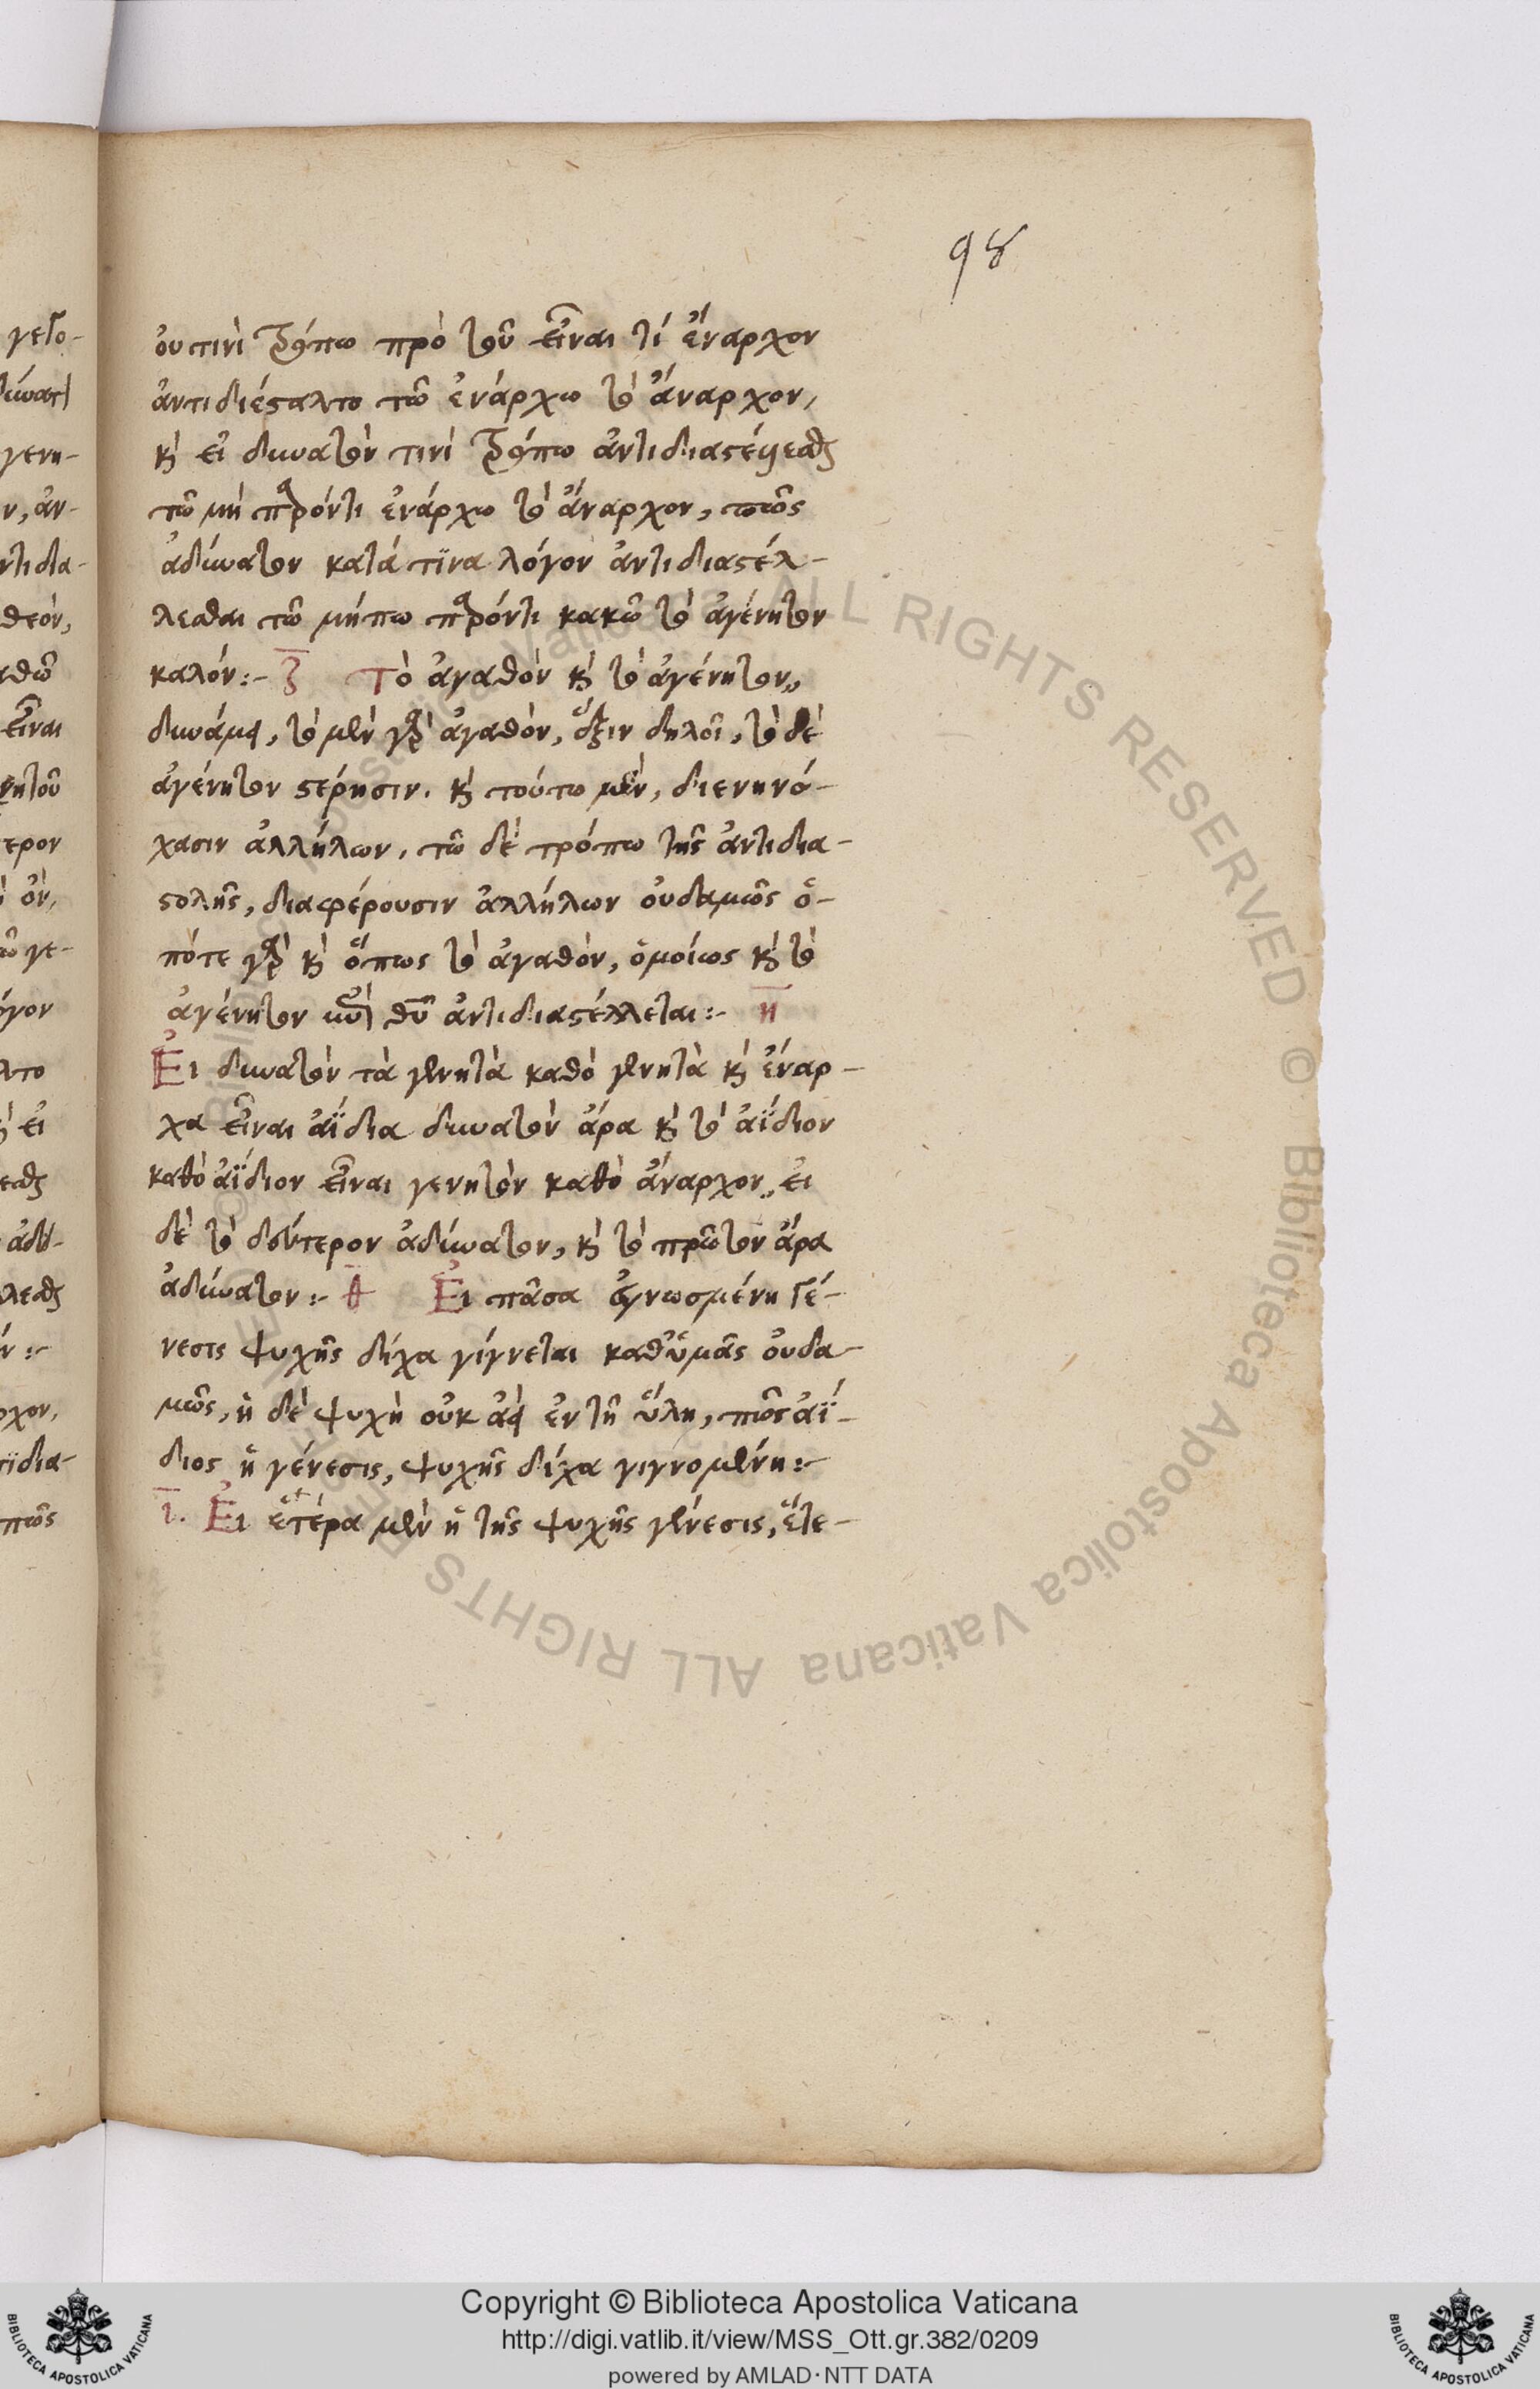 98
γεῖο-
οὐτινὶ τρόπω πρὸ τοῦ εἶναι τί ἔναρχον
ἀντιδιέσταλτο τῶ ἐνάρχω τὸ ἄναρχον,
κὴ εἰ δυνατὸν τινὶ τρόπω ἀντιδιαστέλλεσθαι
τῶ μὴ παρόντι ἐνάρχω τὸ ἄναρχον, πῶς
ἀδύνατον κατά τϊνα λόγον ἀντιδιαστέλ-
λεσθαι τῶ μήπω παρόντι κακῶ τὸ ἀγένητον
καλόν:- ζ Τὸ ἀγαθὸν κὴ τὸ ἀγένητον,,
δυνάμει, τὸ μὲν γὰρ ἀγαθὸν, ἕξιν δηλοῖ, τὸ δὲ
ἀγένητον στέρησιν. κὴ τούτω μὲν, διενηνό-
χασιν ἀλλήλων, τῶ δὲ τρόπω τῆς ἀντιδια-
στολῆς, διαφέρουσιν ἀλλήλων οὐδαμῶς ὁ-
πότε γὰρ κὴ ὅπως τὸ ἀγαθὸν, ὁμοίως κὴ τὸ
ἀγένητον ἀντιδιαστέλλεται:- η
Εἰ δυνατὸν τὰ γενητὰ καθὸ γενητὰ κὴ ἔναρ-
χα εἶναι ἀΐδια δυνατὸν ἄρα κὴ τὸ ἀΐδιον
καθὸ ἀΐδιον εἶναι γενητὸν καθὸ ἄναρχον,, εἰ
δὲ τὸ δεύτερον ἀδύνατον, κὴ τὸ πρῶτον ἄρα
ἀδύνατον:- θ Εἰ πᾶσα ἐγνωσμένη γέ-
νεσις ψυχῆς δίχα γίγνεται καθ' ὑμᾶς οὐδα-
μῶς, ἡ δὲ ψυχὴ οὐκ ἀεὶ ἐν τῆ ὕλη, πῶς ἀΐ-
διος ἡ γένεσις, ψυχῆς δίχα γιγνομένη:-
ι. Εἰ ἑτέρα μὲν ἡ τῆς ψυχῆς γένεσις, ἑτε-
Copyright © Biblioteca Apostolica Vaticana
http://digi.vatlib.it/view/MSS_Ott.gr.382/0209
powered by AMLAD·NTT DATA
BIBLIOTECA APOSTOLICA VATICANA
BIBLIOTECA APOSTOLICA VATICANA
© Biblioteca Apostolica Vaticana ALL RIGHTS RESERVED © Biblioteca Apostolica Vaticana ALL RIGHTS RESERVED